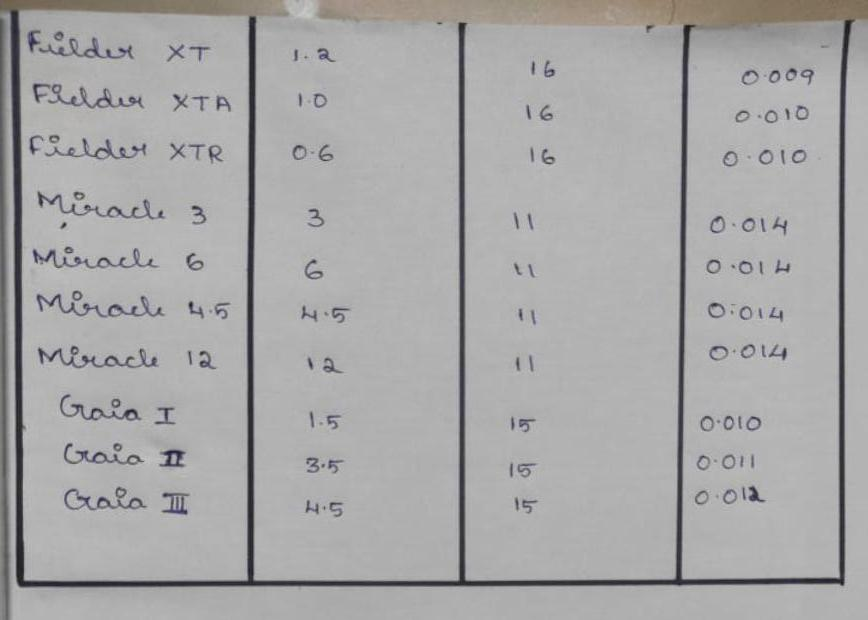 Fielder XT 1.2 16 0.009
Fielder XTA 1.0 16 0.010
Fielder XTR 0.6 16 0.010
Miracle 3 3 11 0.014
Miracle 6 6 11 0.014
Miracle 4.5 4.5 11 0.014
Miracle 12 12 11 0.014
Gaia I 1.5 15 0.010
Gaia II 3.5 15 0.011
Gaia III 4.5 15 0.012